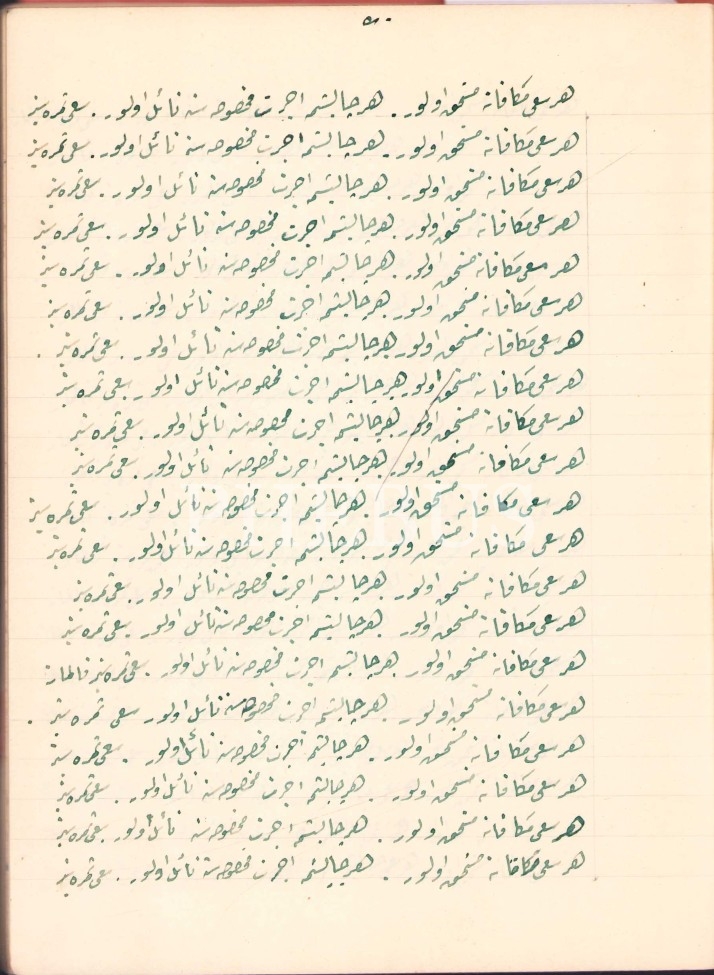 ٥٠
هر سعی مکافاته مستحق اولور . هر چالیشمه اجرت مخصوصه سنه نائل اولور . سعی ثمره سز
هر سعی مکافاته مستحق اولور . هر چالیشمه اجرت مخصوصه سنه نائل اولور . سعی ثمره سز
هر سعی مکافاته مستحق اولور . هر چالیشمه اجرت مخصوصه سنه نائل اولور . سعی ثمره سز
هر سعی مکافاته مستحق اولور . هر چالیشمه اجرت مخصوصه سنه نائل اولور . سعی ثمره سز
هر سعی مکافاته مستحق اولور . هر چالیشمه اجرت مخصوصه سنه نائل اولور . سعی ثمره سز
هر سعی مکافاته مستحق اولور . هر چالیشمه اجرت مخصوصه سنه نائل اولور . سعی ثمره سز
هر سعی مکافاته مستحق اولور . هر چالیشمه اجرت مخصوصه سنه نائل اولور . سعی ثمره سز .
هر سعی مکافاته مستحق اولور . هر چالیشمه اجرت مخصوصه سنه نائل اولور . سعی ثمره سز
هر سعی مکافاته مستحق اولور . هر چالیشمه اجرت مخصوصه سنه نائل اولور . سعی ثمره سز
هر سعی مکافاته مستحق اولور . هر چالیشمه اجرت مخصوصه سنه نائل اولور . سعی ثمره سز
هر سعی مکافاته مستحق اولور . هر چالیشمه اجرت مخصوصه سنه نائل اولور . سعی ثمره سز
هر سعی مکافاته مستحق اولور . هر چالیشمه اجرت مخصوصه سنه نائل اولور . سعی ثمره سز
هر سعی مکافاته مستحق اولور . هر چالیشمه اجرت مخصوصه سنه نائل اولور . سعی ثمره سز
هر سعی مکافاته مستحق اولور . هر چالیشمه اجرت مخصوصه سنه نائل اولور . سعی ثمره سز
هر سعی مکافاته مستحق اولور . هر چالیشمه اجرت مخصوصه سنه نائل اولور . سعی ثمره سز قالماز
هر سعی مکافاته مستحق اولور . هر چالیشمه اجرت مخصوصه سنه نائل اولور سعی ثمره سز .
هر سعی مکافاته مستحق اولور . هر چالیشمه اجرت مخصوصه سنه نائل اولور . سعی ثمره سز
هر سعی مکافاته مستحق اولور . هر چالیشمه اجرت مخصوصه سنه نائل اولور . سعی ثمره سز
هر سعی مکافاته مستحق اولور . هر چالیشمه اجرت مخصوصه سنه نائل اولور . سعی ثمره سز
هر سعی مکافاته مستحق اولور . هر چالیشمه اجرت مخصوصه سنه نائل اولور . سعی ثمره سز